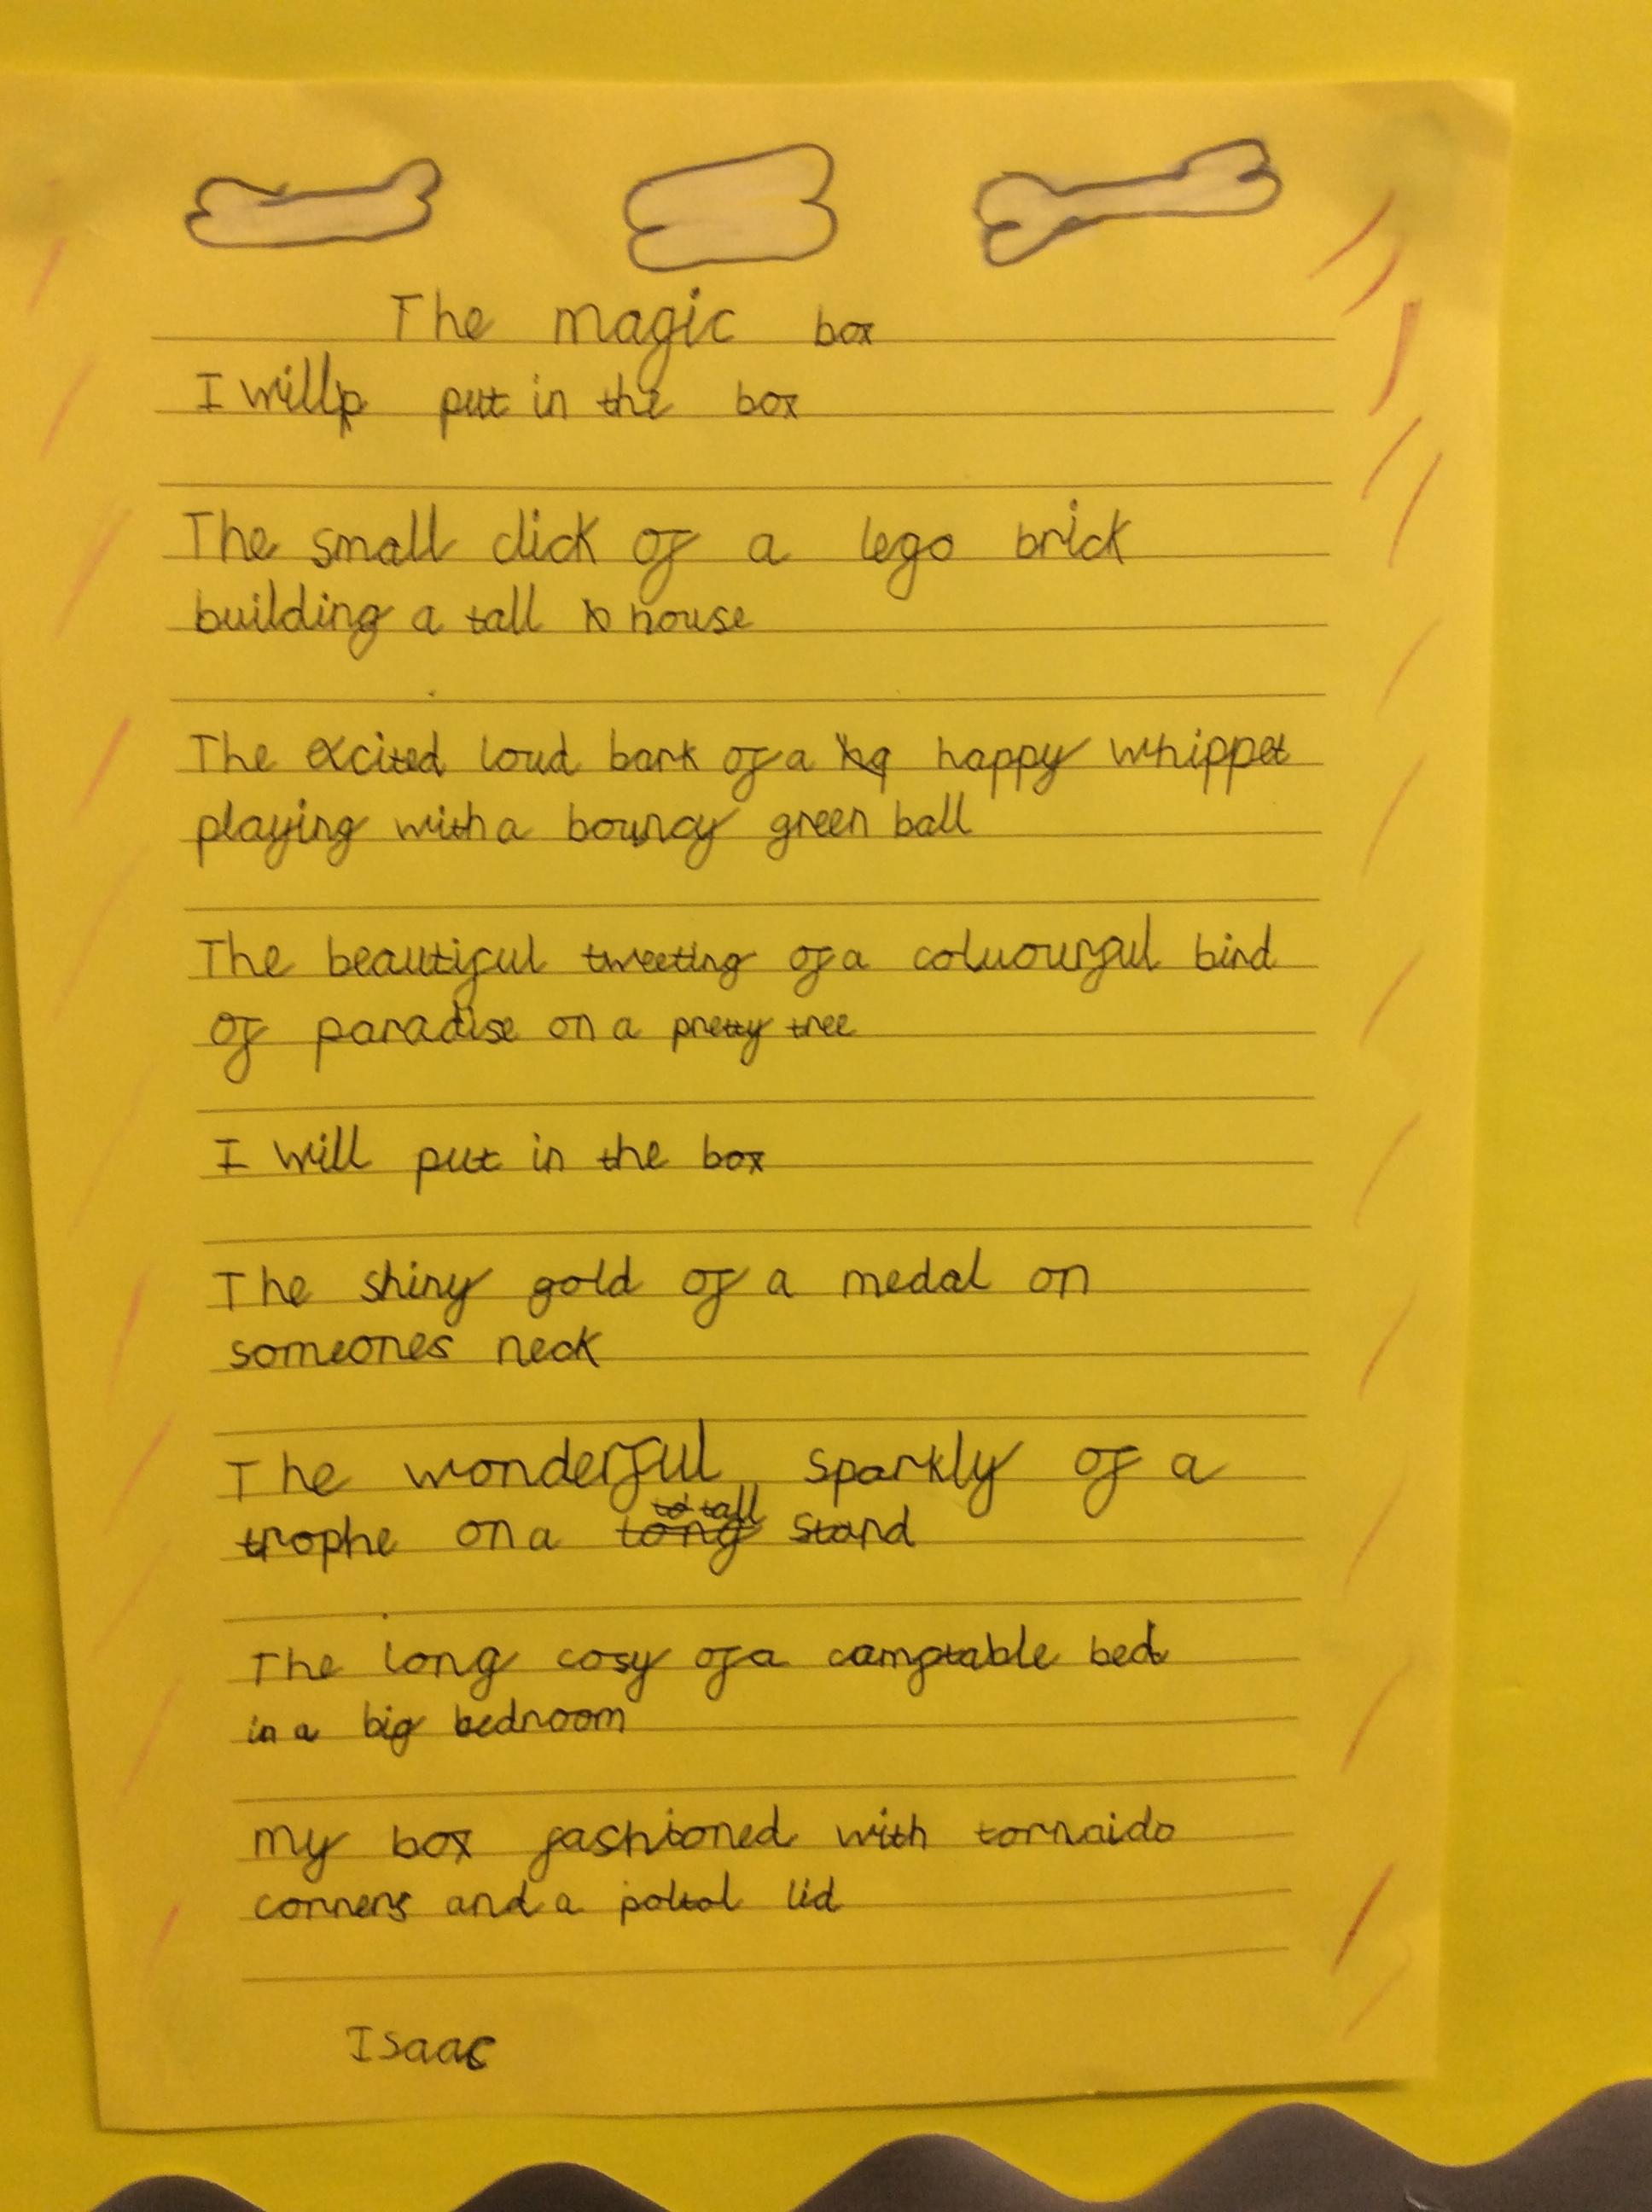 The magic box
I will put in the box
The small click of a lego brick
building a tall house
The excited loud bark of a happy whippet
playing with a bouncy green ball
The beautiful tweeting of a coluourful bird
of paradise on a pretty tree
I will put in the box
The shiny gold of a medal on
someones neck
The wonderful sparkly of a
trophe on a tall stand
The long cosy of a camptable bed
in a big bedroom
My box fashioned with tornaido
corners and a poltal lid
Isaac